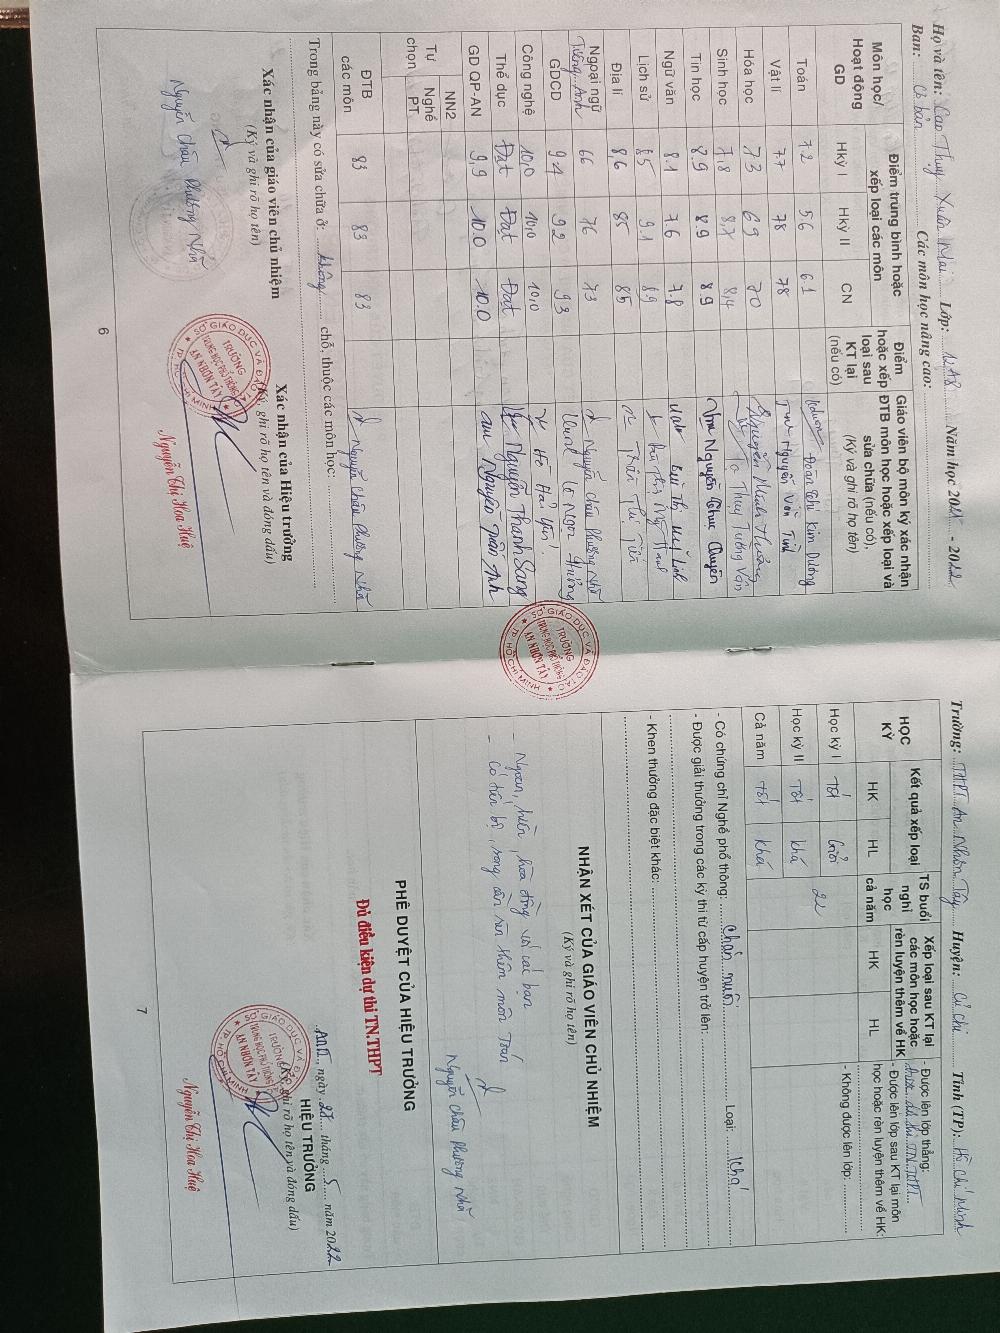 Họ và tên: Cao Thụy Xuân Mai Lớp: 12A8 Năm học 2021 - 2022
Ban: Cơ bản Các môn học nâng cao:
Môn học/ Hoạt động GD
Điểm trung bình hoặc xếp loại các môn
Hkỳ I Hkỳ II CN
Điểm hoặc xếp loại sau KT lại (nếu có)
Giáo viên bộ môn ký xác nhận ĐTB môn học hoặc xếp loại và sửa chữa (nếu có), (Ký và ghi rõ họ tên)
Toán 7.2 5.6 6.1 Đoàn Thị Kim Dương
Vật lí 7.7 7.8 7.8 Nguyễn Văn Tình
Hóa học 7.3 6.9 7.0 Nguyễn Minh Hường
Sinh học 7.8 8.7 8.4 Tạ Thụy Tường Vân
Tin học 8.9 8.9 8.9 Nguyễn Thục Quyên
Ngữ văn 8.1 7.6 7.8 Bùi Thị Mỹ Linh
Lịch sử 8.5 9.1 8.9
Địa lí 8.6 8.5 8.5
Ngoại ngữ Tiếng Anh 6.6 7.6 7.3 Nguyễn Châu Phương Nhã
GDCD 9.4 9.2 9.3 Lê Ngọc Hưởng
Công nghệ 10.0 10.0 10.0 Hồ Hải Yến
Thể dục Đạt Đạt Đạt Nguyễn Thanh Sang
GD QP-AN 9.9 10.0 10.0 Nguyễn Tuấn Anh
Tự chọn NN2
Nghề PT
ĐTB các môn 8.3 8.3 8.3 Nguyễn Châu Phương Nhã
Trong bảng này có sửa chữa ở: không chỗ, thuộc các môn học:
Xác nhận của giáo viên chủ nhiệm
(Ký và ghi rõ họ tên)
Nguyễn Châu Phương Nhã
Xác nhận của Hiệu trưởng
(Ký, ghi rõ họ tên và đóng dấu)
SỞ GIÁO DỤC VÀ ĐÀO TẠO
TRƯỜNG
TRUNG HỌC PHỔ THÔNG
AN NHƠN TÂY
TP. HỒ CHÍ MINH
Nguyễn Thị Hoa Huệ
6
SỞ GIÁO DỤC VÀ ĐÀO TẠO
TRƯỜNG
TRUNG HỌC PHỔ THÔNG
AN NHƠN TÂY
TP. HỒ CHÍ MINH
Trường: THPT An Nhơn Tây Huyện: Củ Chi Tỉnh (TP): Hồ Chí Minh
HỌC KỲ
Kết quả xếp loại
HK HL
TS buổi nghỉ học cả năm
Xếp loại sau KT lại các môn học hoặc rèn luyện thêm về HK
HK HL
Học kỳ I Tốt Giỏi
Học kỳ II Tốt Khá
Cả năm Tốt Khá
22
- Được lên lớp thẳng:
Được dự thi TN.THPT
- Được lên lớp sau KT lại môn học hoặc rèn luyện thêm về HK:
- Không được lên lớp:
- Có chứng chỉ Nghề phổ thông: Chăn nuôi Loại: Khá
- Được giải thưởng trong các kỳ thi từ cấp huyện trở lên:
- Khen thưởng đặc biệt khác:
NHẬN XÉT CỦA GIÁO VIÊN CHỦ NHIỆM
(Ký và ghi rõ họ tên)
- Ngoan, hiền, hòa đồng với các bạn
- Có tiến bộ, song cần rèn thêm môn Toán
Nguyễn Châu Phương Nhã
PHÊ DUYỆT CỦA HIỆU TRƯỞNG
Đủ điều kiện dự thi TN.THPT
ngày 25 tháng 5 năm 2022
HIỆU TRƯỞNG
(Ký, ghi rõ họ tên và đóng dấu)
SỞ GIÁO DỤC VÀ ĐÀO TẠO
TRƯỜNG
TRUNG HỌC PHỔ THÔNG
AN NHƠN TÂY
TP. HỒ CHÍ MINH
Nguyễn Thị Hoa Huệ
7